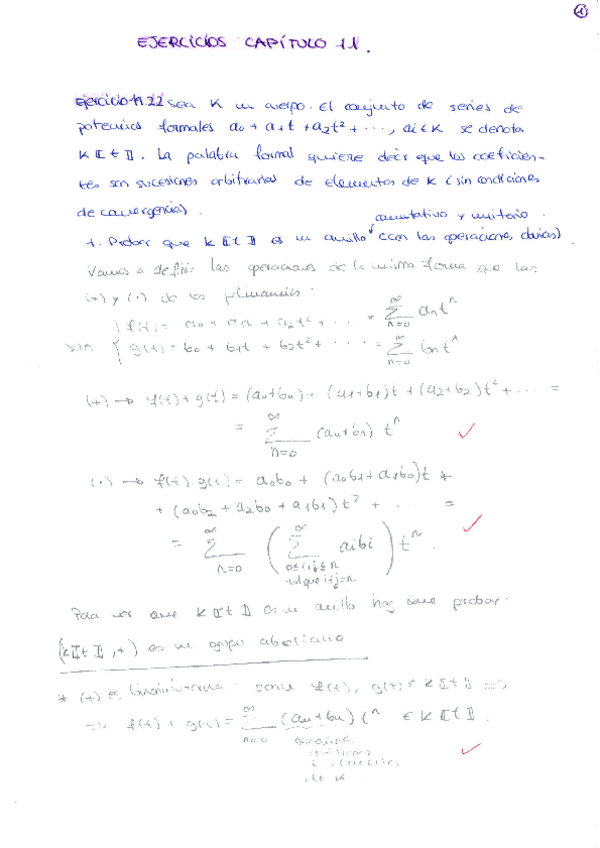 1
EJERCICIOS CAPÍTULO 11.
Ejercicio 11.22 Sea K un cuerpo. El conjunto de series de
potencias formales a0 + a1t + a2t² + ···, ai ∈ K se denota
K⟦t⟧. La palabra formal quiere decir que los coeficien-
tes son sucesiones arbitrarias de elementos de K (sin condiciones
de convergencia).
conmutativo y unitario.
1. Probar que K⟦t⟧ es un anillo (con las operaciones obvias)
Vamos a definir las operaciones de la misma forma que las
(+) y (·) de los polinomios:
f(t) = a0 + a1t + a2t² + ··· = ∑_{n=0}^{∞} an tⁿ
Sean { g(t) = b0 + b1t + b2t² + ··· = ∑_{n=0}^{∞} bn tⁿ
(+) → f(t) + g(t) = (a0+b0) + (a1+b1)t + (a2+b2)t² + ··· =
= ∑_{n=0}^{∞} (an+bn) tⁿ
(·) → f(t) g(t) = a0b0 + (a0b1 + a1b0)t +
+ (a0b2 + a2b0 + a1b1)t² + ··· =
= ∑_{n=0}^{∞} ( ∑_{0≤i,j≤n tal que i+j=n} aibj ) tⁿ.
Para ver que K⟦t⟧ es un anillo hay que probar:
(K⟦t⟧, +) es un grupo abeliano
* (+) es f(t), g(t) ∈ K⟦t⟧ ⇒
⇒ f(t) + g(t) = ∑_{n=0}^{∞} (an+bn) tⁿ ∈ K⟦t⟧.